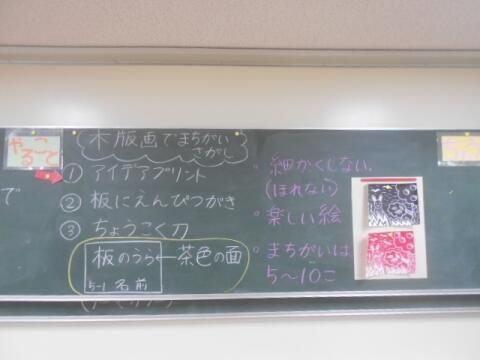 やること
木版画でまちがい
さがし
① アイデアプリント
② 板にえんぴつがき
③ ちょうこく刀
板のうら←茶色の面
5-1 名前
で
・細かくしない。
(ほれない)
・楽しい絵
・まちがいは
5～10こ